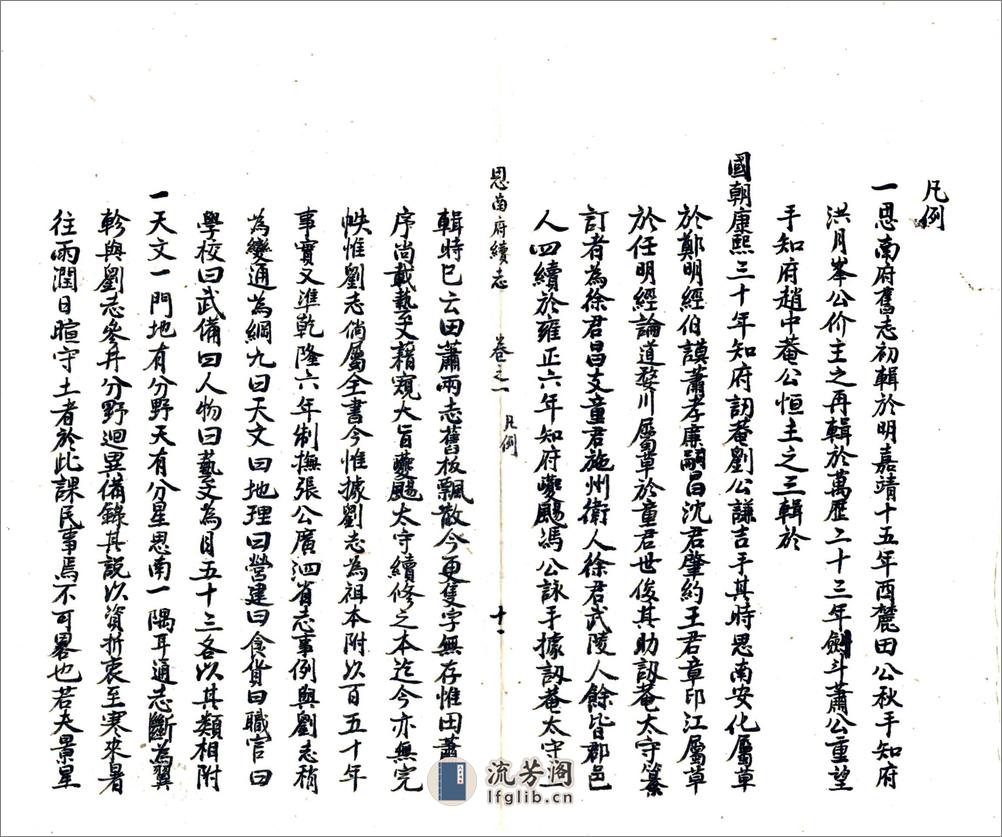 凡例
一思南府舊志初輯於明嘉靖十五年西麓田公秋手知府
洪月峯公价主之再輯於萬歷二十三年劍斗蕭公重望
手知府趙中菴公恒主之三輯於
國朝康熙三十年知府訒菴劉公謙吉手其時思南安化屬草
於鄭明經伯謨蕭孝廉嗣昌沈君肇約王君章印江屬草
於任明經論道婺川屬草於童君世俊其助訒菴太守纂
訂者為徐君昌支童君施州衛人徐君武陵人餘皆郡邑
人四續於雍正六年知府夔颺馮公詠手據訒菴太守
思南府續志 卷之一 凡例 十一
輯時已云田蕭兩志舊板飄散今更隻字無存惟田蕭二
序尚載藝文藉窺大旨夔颺太守續修之本迄今亦無完
帙惟劉志倘屬全書今惟據劉志為祖本附以百五十年
事實又準乾隆六年制撫張公廣泗省志事例與劉志稍
為變通為綱九曰天文曰地理曰營建曰食貨曰職官曰
學校曰武備曰人物曰藝文為目五十三各以其類相附
一天文一門地有分野天有分星思南一隅耳通志斷為翼
軫與劉志參井分野迴異備錄其說以資折衷至寒來暑
往雨潤日暄守土者於此課民事焉不可畧也若夫景星
流芳阁
lfglib.cn